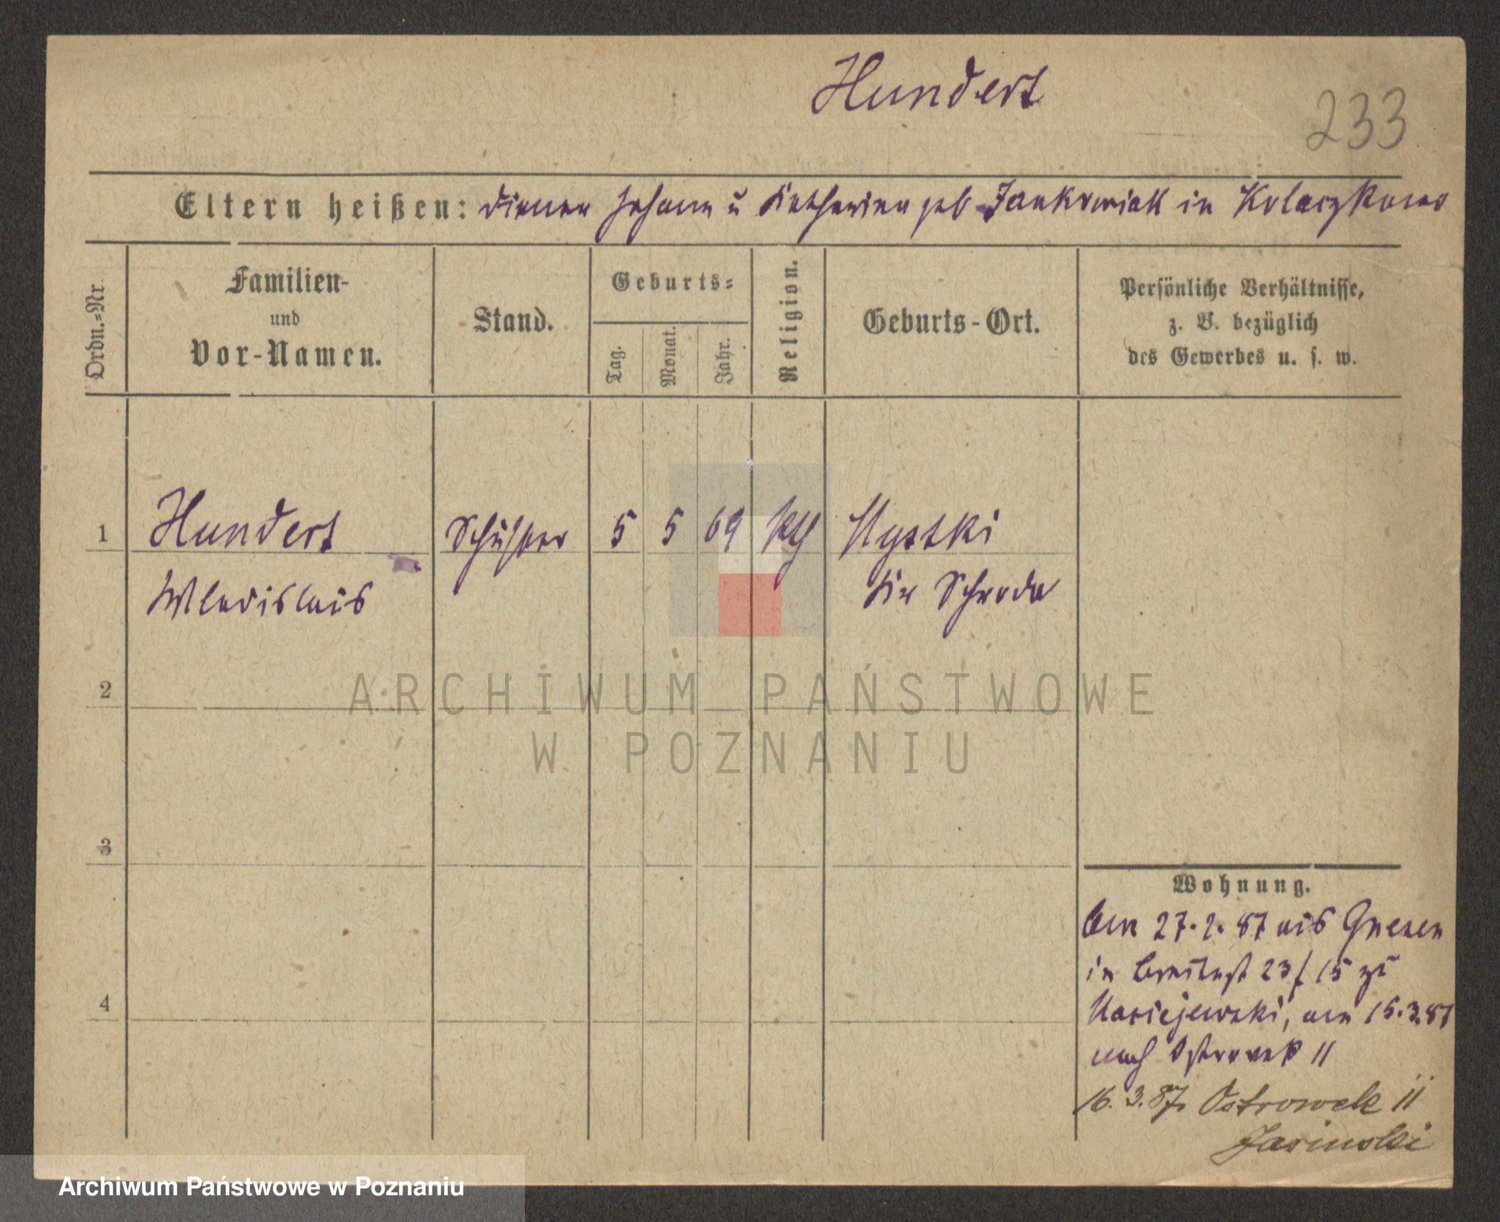 Hundert
233
Eltern heißen: Diener Johann u Katharina geb Jankowiak in Kolaczkowo
Ordn.-Nr.
Familien-
und
Vor-Namen.
Stand.
Geburts-
Tag.
Monat.
Jahr.
Religion.
Geburts-Ort.
Persönliche Verhältnisse,
z. B. bezüglich
des Gewerbes u. s. w.
1 Hundert Schuster 5 5 69 kth
Wladislaus Kr Schroda
2
3
4
Wohnung.
Am 27.2.87 aus Gnesen
in Breitestr 23/15 zu
Maciejewski, am 15.3.87
nach Ostrowek 11
16.3.87. Ostrowek 11
Jasinski
ARCHIWUM PAŃSTWOWE
W POZNANIU
Archiwum Państwowe w Poznaniu